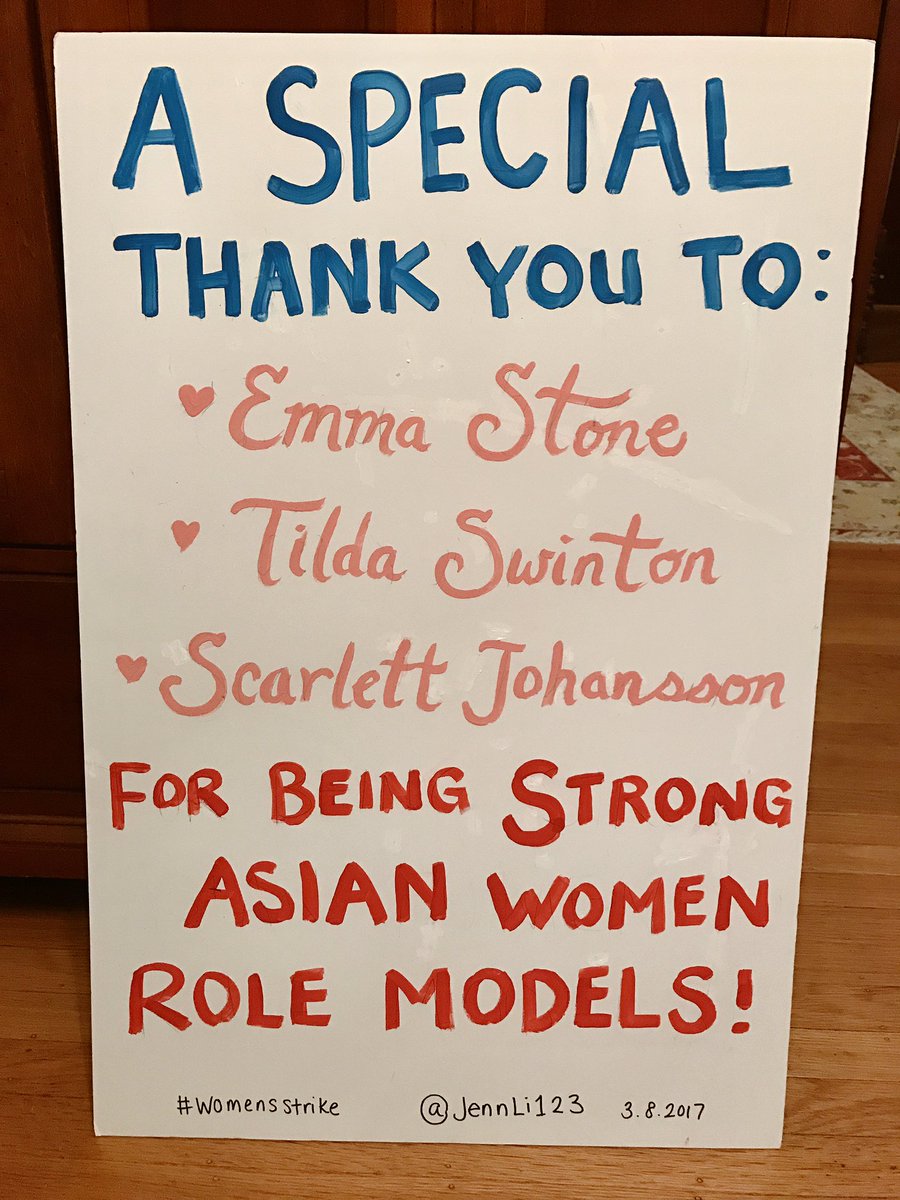 A SPECIAL
THANK YOU TO:
♥ Emma Stone
♥ Tilda Swinton
♥ Scarlett Johansson
FOR BEING STRONG
ASIAN WOMEN
ROLE MODELS!
#Womensstrike @JennLi123 3.8.2017